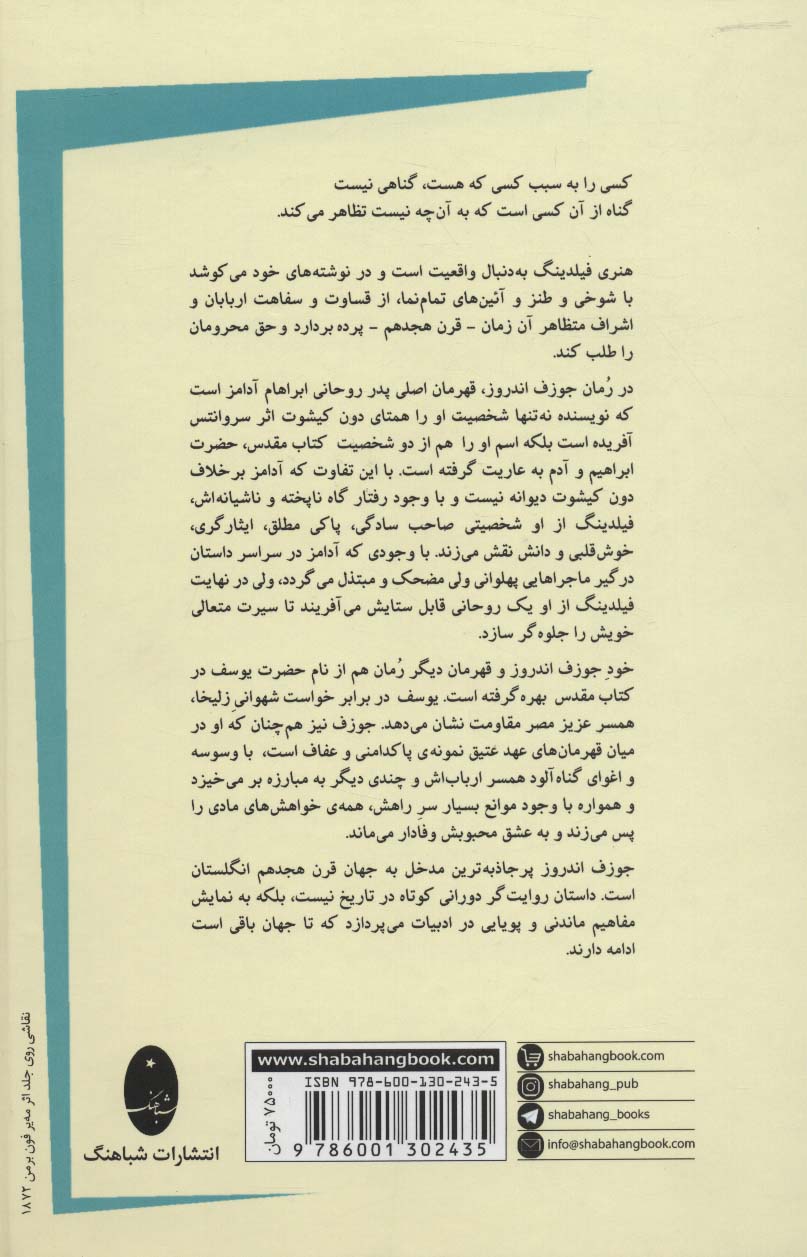 کسی را به سبب کسی که هست، گناهی نیست
گناه از آن کسی است که به آن‌چه نیست تظاهر می‌کند.
هنری فیلدینگ به‌دنبال واقعیت است و در نوشته‌های خود می‌کوشد
با شوخی و طنز و آئین‌های تمام‌نما، از قساوت و سفاهت اربابان و
اشراف متظاهر آن زمان - قرن هجدهم - پرده بردارد و حق محرومان
را طلب کند.
در رُمان جوزف اندروز، قهرمان اصلی پدر روحانی ابراهام آدامز است
که نویسنده نه‌تنها شخصیت او را همتای دون کیشوت اثر سروانتس
آفریده است بلکه اسم او را هم از دو شخصیت کتاب مقدس، حضرت
ابراهیم و آدم به عاریت گرفته است. با این تفاوت که آدامز برخلاف
دون کیشوت دیوانه نیست و با وجود رفتار گاه ناپخته و ناشیانه‌اش،
فیلدینگ از او شخصیتی صاحب سادگی، پاکی مطلق، ایثارگری،
خوش‌قلبی و دانش نقش می‌زند. با وجودی که آدامز در سراسر داستان
درگیر ماجراهایی پهلوانی ولی مضحک و مبتذل می‌گردد، ولی در نهایت
فیلدینگ از او یک روحانی قابل ستایش می‌آفریند تا سیرت متعالی
خویش را جلوه‌گر سازد.
خودِ جوزف اندروز و قهرمان دیگر رُمان هم از نام حضرت یوسف در
کتاب مقدس بهره گرفته است. یوسف در برابر خواست شهوانیِ زلیخا،
همسر عزیز مصر مقاومت نشان می‌دهد. جوزف نیز هم‌چنان که او در
میان قهرمان‌های عهد عتیق نمونه‌ی پاکدامنی و عفاف است، با وسوسه
و اغوای گناه‌آلود همسر ارباب‌اش و چندی دیگر به مبارزه بر می‌خیزد
و همواره با وجود موانع بسیار سرِ راهش، همه‌ی خواهش‌های مادی را
پس می‌زند و به عشق محبوبش وفادار می‌ماند.
جوزف اندروز پرجاذبه‌ترین مدخل به جهان قرن هجدهم انگلستان
است. داستان روایت‌گر دورانی کوتاه در تاریخ نیست، بلکه به نمایش
مفاهیم ماندنی و پویایی در ادبیات می‌پردازد که تا جهان باقی است
ادامه دارند.
نقاشی روی جلد اثر مه‌یر فون برمن ۱۸۷۲
شباهنگ
انتشارات شباهنگ
www.shabahangbook.com
ISBN 978-600-130-243-5
9 786001 302435
۷۵۰۰۰ تومان
shabahangbook.com
shabahang_pub
shabahang_books
info@shabahangbook.com